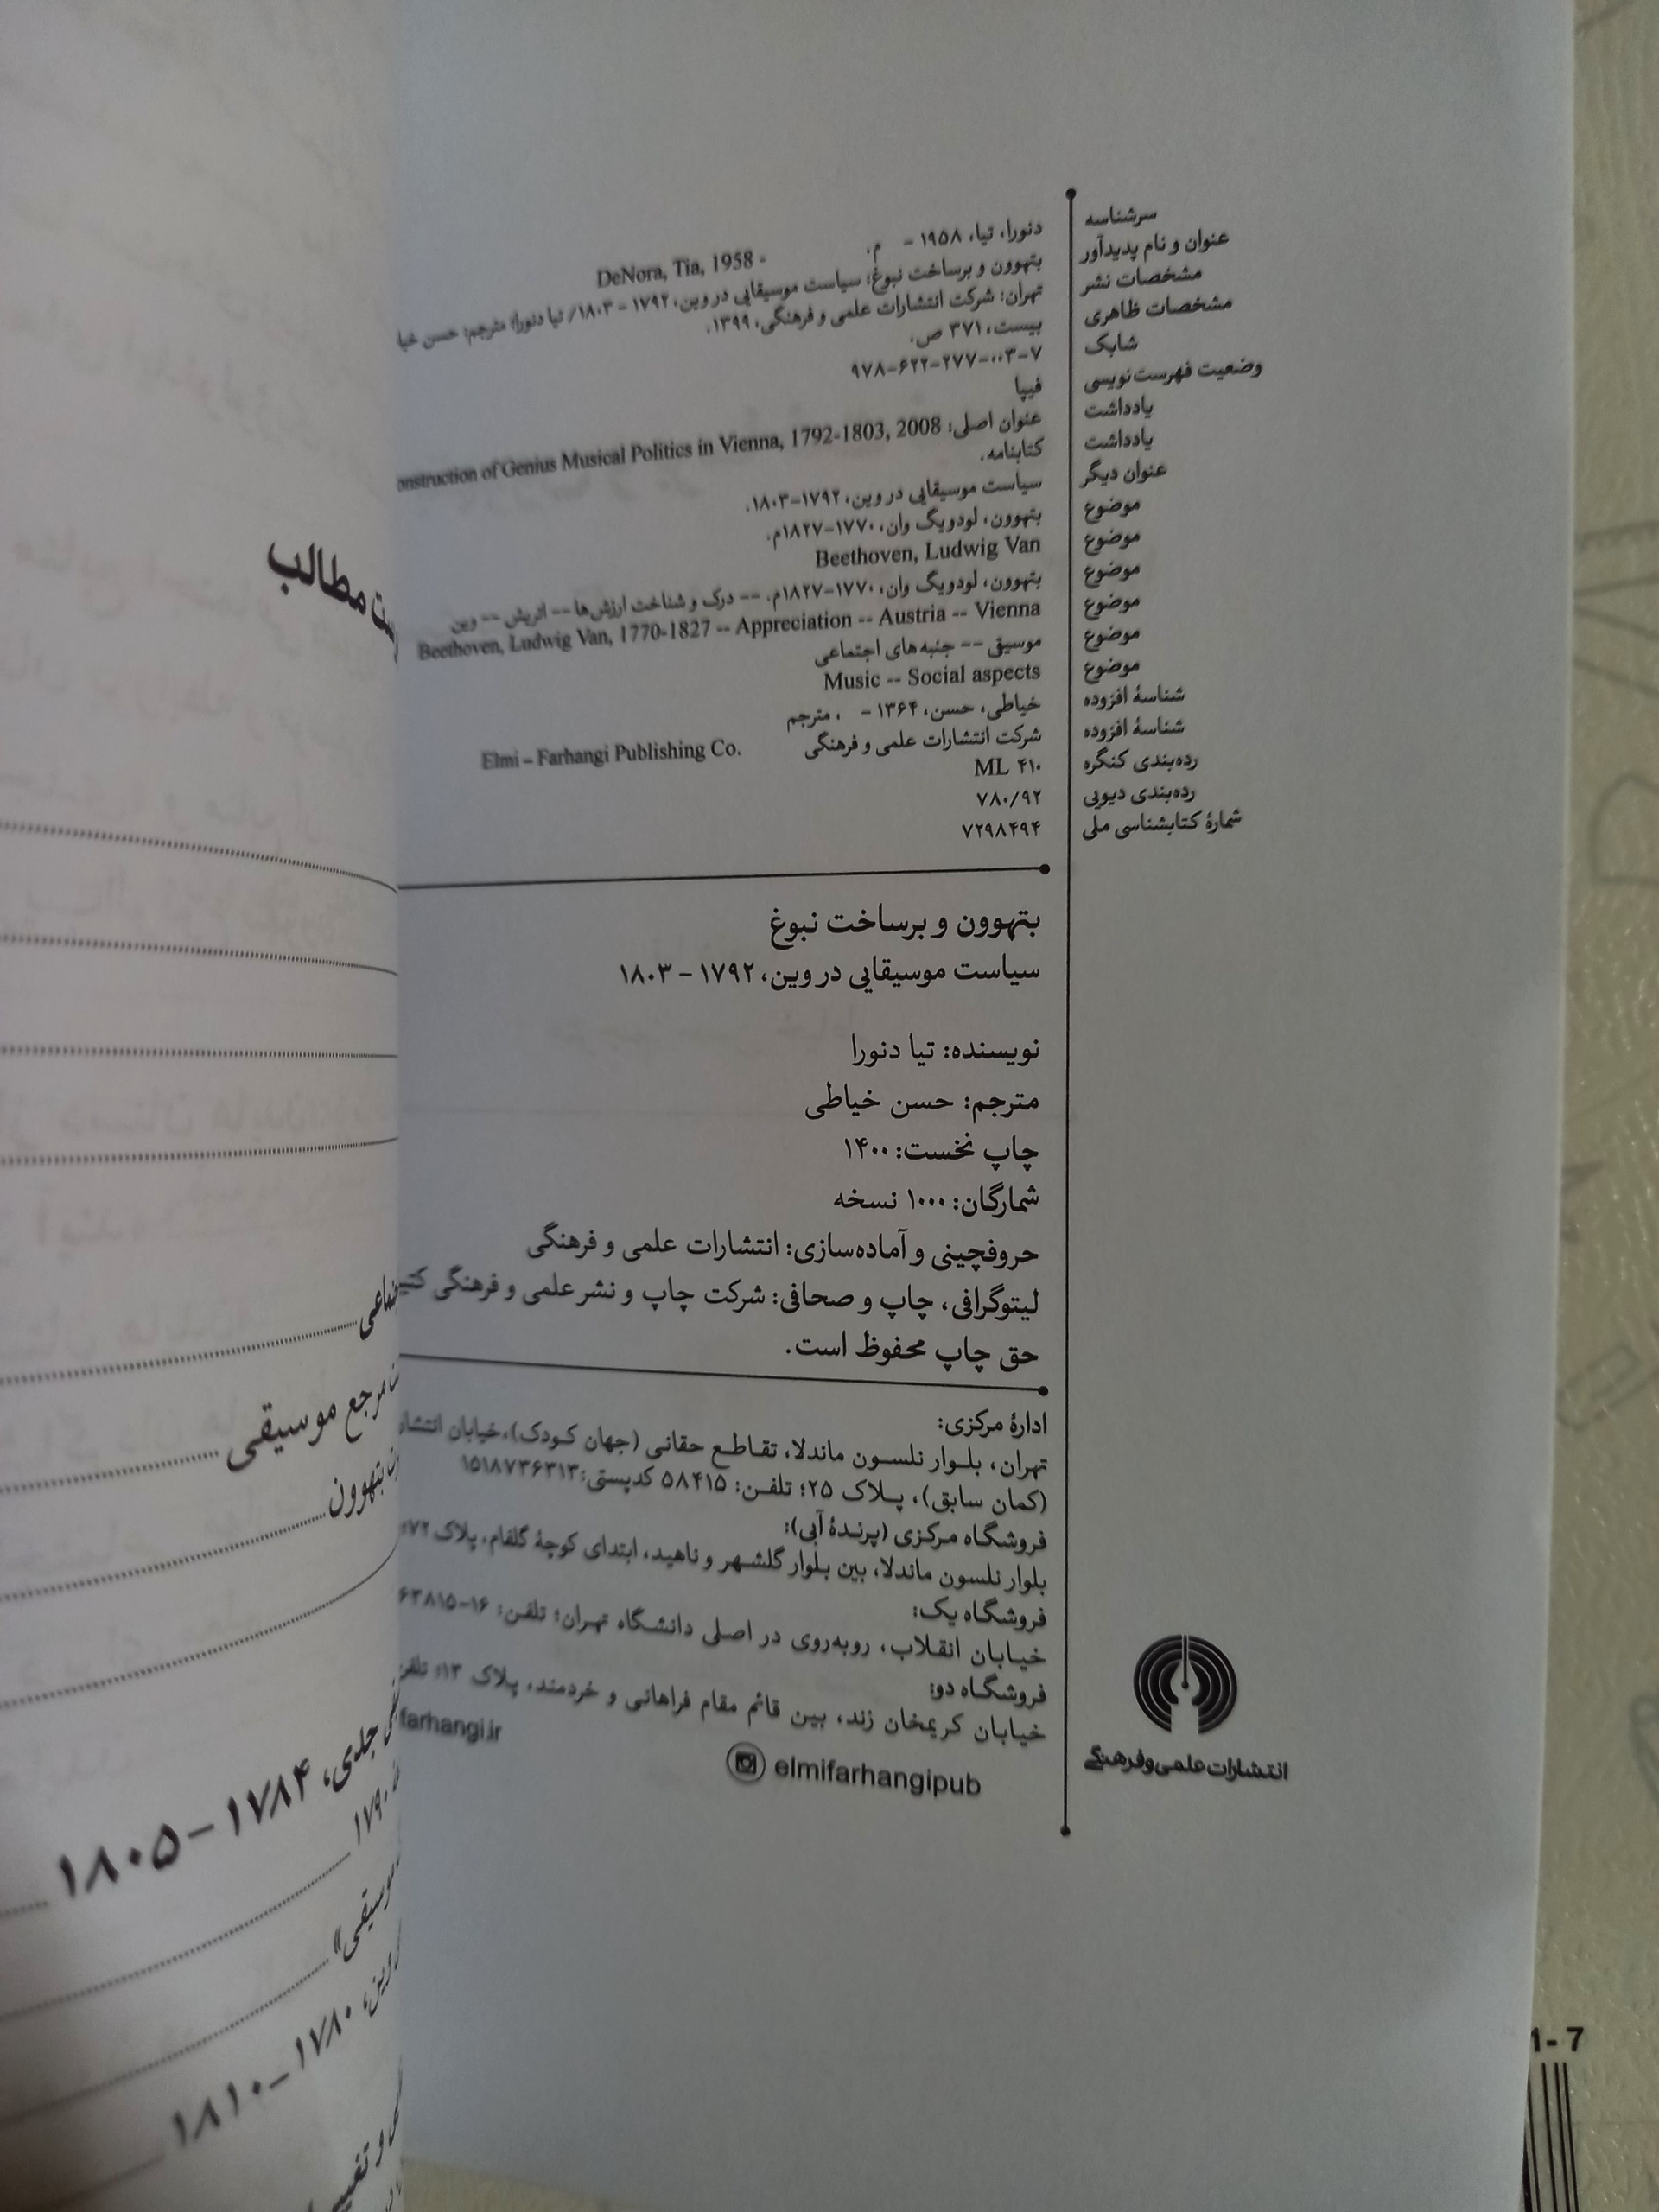 سرشناسه دنورا، تیا، ۱۹۵۸ - م. DeNora, Tia, 1958 -
عنوان و نام پدیدآور بتهوون و برساخت نبوغ: سیاست موسیقایی در وین، ۱۷۹۲ - ۱۸۰۳/ تیا دنورا؛ مترجم: حسن
مشخصات نشر تهران: شرکت انتشارات علمی و فرهنگی، ۱۳۹۹.
مشخصات ظاهری بیست، ۳۷۱ ص.
شابک ۹۷۸-۶۲۲-۲۷۷-۰۰۳-۷
وضعیت فهرست‌نویسی فیپا
یادداشت عنوان اصلی: onstruction of Genius Musical Politics in Vienna, 1792-1803, 2008
یادداشت کتابنامه.
عنوان دیگر سیاست موسیقایی در وین، ۱۷۹۲-۱۸۰۳.
موضوع بتهوون، لودویگ وان، ۱۷۷۰-۱۸۲۷م.
موضوع Beethoven, Ludwig Van
موضوع بتهوون، لودویگ وان، ۱۷۷۰-۱۸۲۷م. -- درک و شناخت ارزش‌ها -- اتریش -- وین
موضوع Beethoven, Ludwig Van, 1770-1827 -- Appreciation -- Austria -- Vienna
موضوع موسیقی -- جنبه‌های اجتماعی
موضوع Music -- Social aspects
شناسهٔ افزوده خیاطی، حسن، ۱۳۶۴ - ، مترجم
شناسهٔ افزوده شرکت انتشارات علمی و فرهنگی Elmi – Farhangi Publishing Co.
رده‌بندی کنگره ML ۴۱۰
رده‌بندی دیویی ۷۸۰/۹۲
شمارهٔ کتابشناسی ملی ۷۲۹۸۴۹۴
بتهوون و برساخت نبوغ
سیاست موسیقایی در وین، ۱۷۹۲ - ۱۸۰۳
نویسنده: تیا دنورا
مترجم: حسن خیاطی
چاپ نخست: ۱۴۰۰
شمارگان: ۱۰۰۰ نسخه
حروفچینی و آماده‌سازی: انتشارات علمی و فرهنگی
لیتوگرافی، چاپ و صحافی: شرکت چاپ و نشر علمی و فرهنگی
حق چاپ محفوظ است.
ادارهٔ مرکزی:
تهران، بلوار نلسون ماندلا، تقاطع حقانی (جهان کودک)، خیابان
(کمان سابق)، پلاک ۲۵؛ تلفن: ۵۸۴۱۵ کدپستی: ۱۵۱۸۷۳۶۳۱۳
فروشگاه مرکزی (پرندهٔ آبی):
بلوار نلسون ماندلا، بین بلوار گلشهر و ناهید، ابتدای کوچهٔ گلفام، پلاک ۷۲؛
فروشگاه یک:
خیابان انقلاب، روبه‌روی در اصلی دانشگاه تهران؛ تلفن: ۱۶-۶۳۸۱۵
فروشگاه دو:
خیابان کریمخان زند، بین قائم مقام فراهانی و خردمند، پلاک ۱۳؛
farhangi.ir
elmifarhangipub
انتشارات علمی و فرهنگی
مطالب
مرجع موسیقی
بتهوون
جدی، ۱۷۸۴-۱۸۰۵
۱۷۹۰
موسیقی»
وین، ۱۷۸۰-۱۸۱۰
1-7